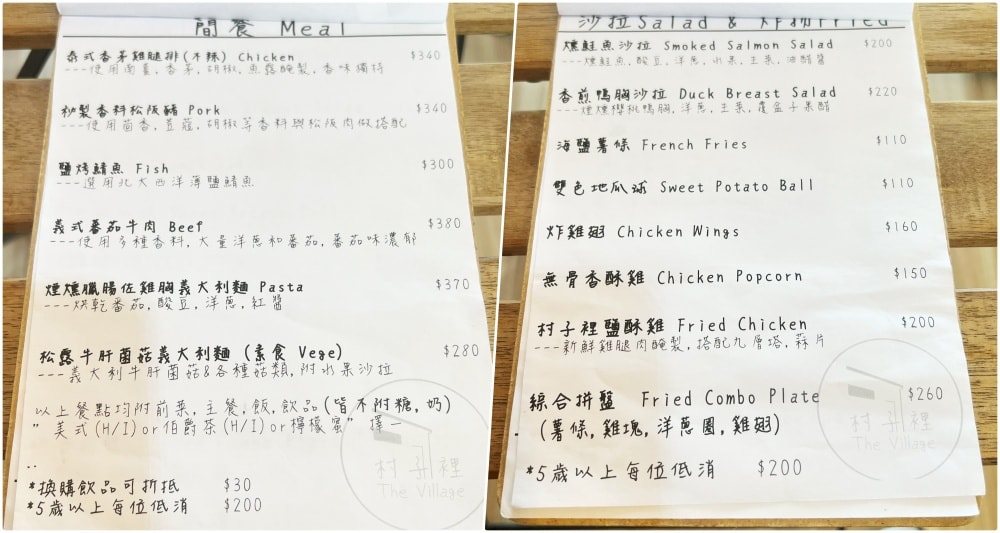 簡餐 Meal
泰式香茅雞腿排(不辣) Chicken $340
---使用南薑,香茅,胡椒,魚露醃製,香味獨特
秘製香料松阪豬 Pork $340
---使用茴香,荳蔻,胡椒等香料與松阪肉做搭配
鹽烤鯖魚 Fish $300
---選用北大西洋薄鹽鯖魚
義式蕃茄牛肉 Beef $380
---使用多種香料,大量洋蔥和番茄,番茄味濃郁
煙燻臘腸佐雞胸義大利麵 Pasta $370
---烘乾番茄,酸豆,洋蔥,紅醬
松露牛肝菌菇義大利麵 (素食 Vege) $280
---義大利牛肝菌菇&各種菇類,附水果沙拉
以上餐點均附前菜,主餐,飯,飲品(皆不附糖,奶)
"美式(H/I)or伯爵茶(H/I)or檸檬蜜" 擇一
..
*換購飲品可折抵 $30
*5歲以上每位低消 $200
村子裡
The Village
沙拉Salad & 炸物Fried
燻鮭魚沙拉 Smoked Salmon Salad $200
---燻鮭魚,酸豆,洋蔥,水果,生菜,油醋醬
香煎鴨胸沙拉 Duck Breast Salad $220
---煙燻櫻桃鴨胸,洋蔥,生菜,覆盆子果醋
海鹽薯條 French Fries $110
雙色地瓜球 Sweet Potato Ball $110
炸雞翅 Chicken Wings $160
無骨香酥雞 Chicken Popcorn $150
村子裡鹽酥雞 Fried Chicken $200
---新鮮雞腿肉醃製,搭配九層塔,蒜片
綜合拼盤 Fried Combo Plate $260
(薯條,雞塊,洋蔥圈,雞翅)
*5歲以上每位低消 $200
村子裡
The Village